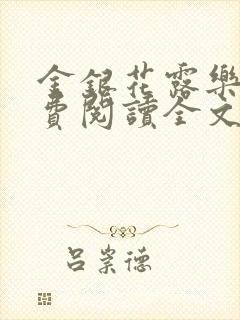 金銀花露樂
費閱讀全文
呂崇德